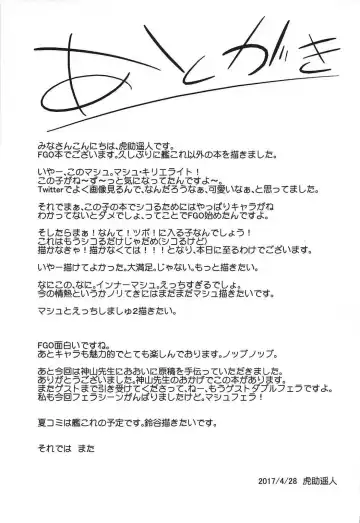 あとがき
みなさんこんにちは、虎助遥人です。
FGO本でございます。久しぶりに艦これ以外の本を描きました。
いやー、このマシュ。マシュ・キリエライト!
この子がね~ず~っと気になってたんですよ~。
Twitterでよく画像見るんで、なんだろうなぁ、可愛いなぁ、と思ってました。
それでまぁ、この子の本でシコるためにはやっぱりキャラがね
わかってないとダメでしょ、ってことでFGO始めたんですよ。
そしたらまぁ!なんて!ツボ!に入る子なんでしょう!
これはもうシコるだけじゃだめ(シコるけど)
描かなきゃ!描かなくては!!!となり、本日に至るわけでございます。
いやー描けてよかった。大満足。じゃない。もっと描きたい。
なにこの、なに。インナーマシュ。えっちすぎるでしょ。
今の情熱というかノリてきにはまだまだマシュ描きたいです。
マシュとえっちしましゅ2描きたい。
FGO面白いですね。
あとキャラも魅力的でとても楽しんでおります。ノッブノッブ。
あと今回は神山先生におおいに原稿を手伝っていただきました。
ありがとうございました。神山先生のおかげでこの本があります。
またゲストまで引き受けてくださって、ねー、もうゲストダブルフェラですよ。
私も今回フェラシーンがんばりましたけど。マシュフェラ!
夏コミは艦これの予定です。鈴谷描きたいです。
それでは また
2017/4/28 虎助遥人